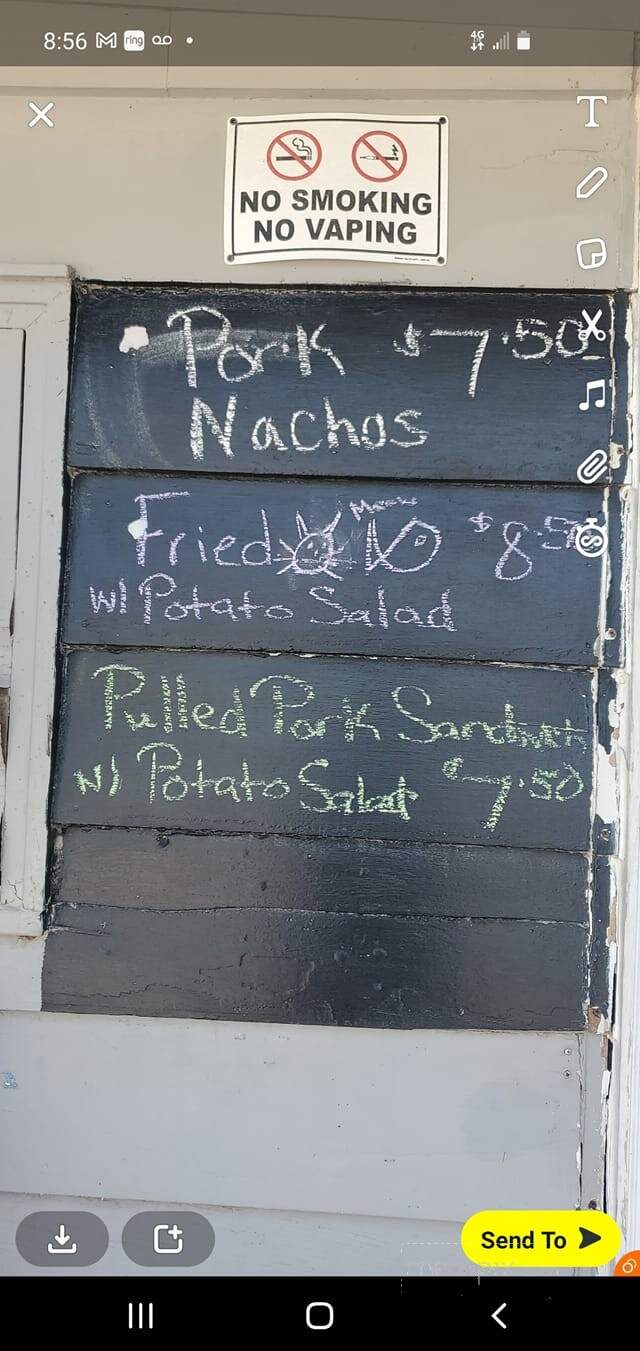 8:56 M ring 4G
T
NO SMOKING
NO VAPING
Pork $7.50
Nachos
Fried Meow $8.5
w/ Potato Salad
Pulled Pork Sandwich
w/ Potato Salad $7.50
Send To